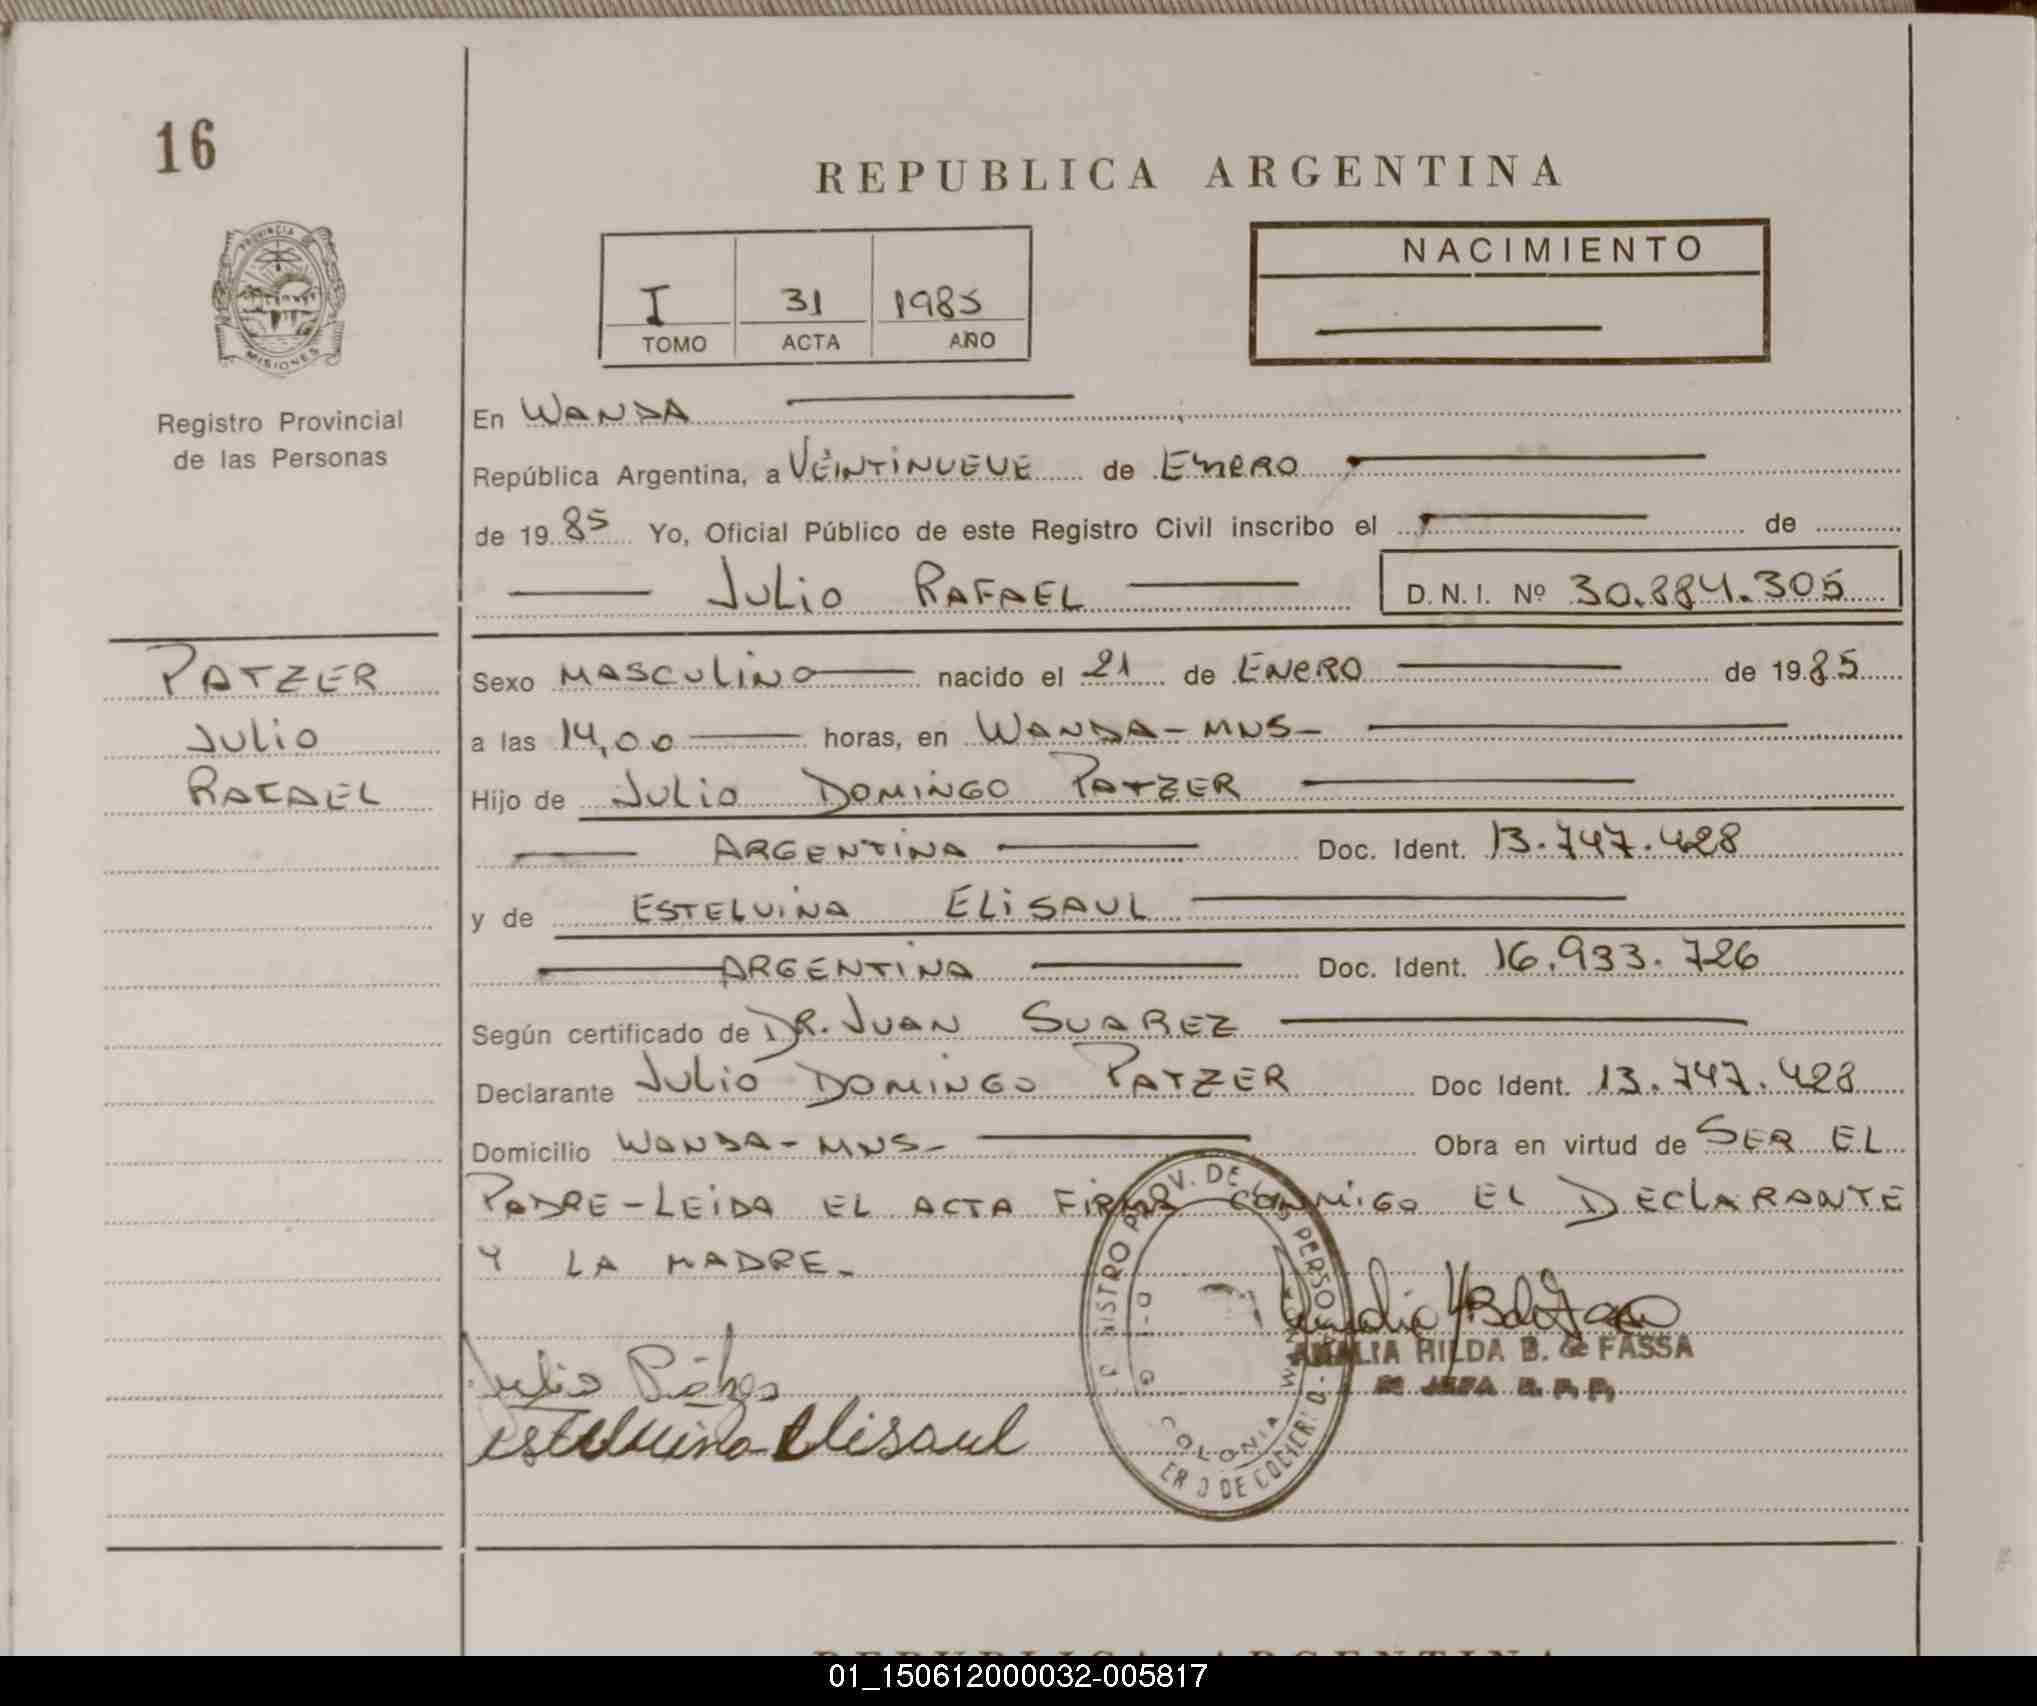 16
REPUBLICA ARGENTINA
PROVINCIA
MISIONES
I 31 1985
TOMO ACTA AÑO
NACIMIENTO
Registro Provincial
de las Personas
En WANDA
República Argentina, a VEINTINUEVE de ENERO
de 1985 Yo, Oficial Público de este Registro Civil inscribo el de
JULIO RAFAEL D.N.I. Nº 30.884.305
PATZER
JULIO
RAFAEL
Sexo MASCULINO nacido el 21 de ENERO de 1985
a las 14,00 horas, en WANDA-MNS-
Hijo de JULIO DOMINGO PATZER
ARGENTINA Doc. Ident. 13.747.428
y de ESTELVINA ELISAUL
ARGENTINA Doc. Ident. 16.933.726
Según certificado de DR. JUAN SUAREZ
Declarante JULIO DOMINGO PATZER Doc Ident. 13.747.428
Domicilio WANDA-MNS- Obra en virtud de SER EL
PADRE-LEIDA EL ACTA FIRMA CONMIGO EL DECLARANTE
Y LA MADRE.-
Julio
Estelvina Elisaul
AMALIA HILDA B. de FASSA
COLONIA
01_150612000032-005817